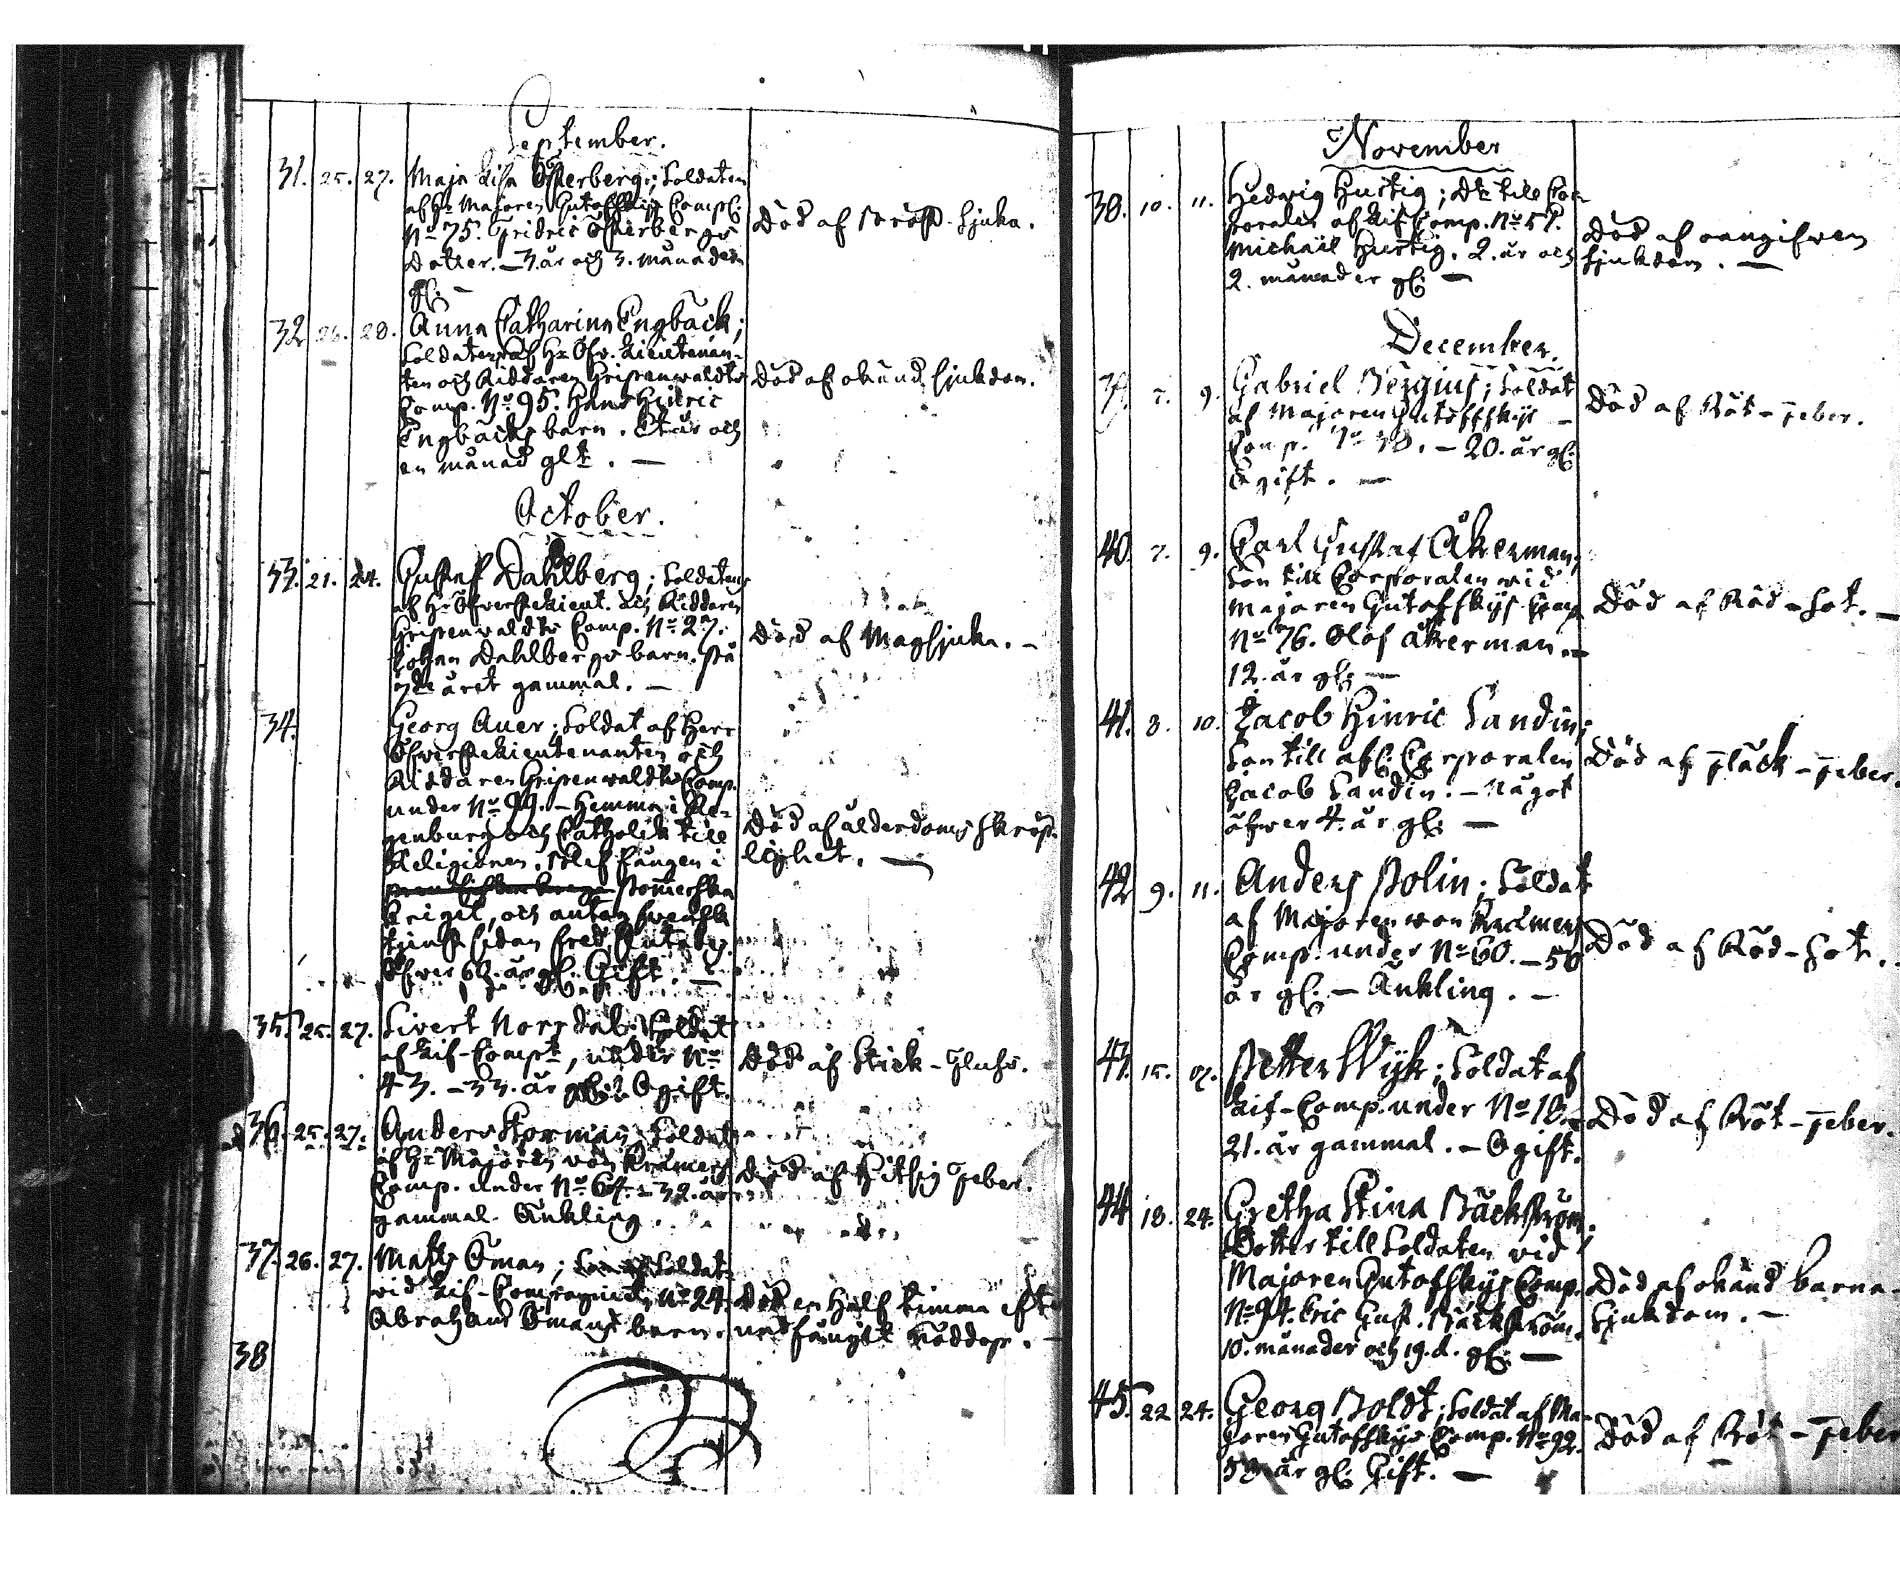 September.
31. 25. 27. Maja Lisa Österberg; Soldaten
af Hr Majoren Gutoffskijs Comp:
No 75. Fridric Österbergs
Dotter. – 3. år och 3. månader
gl: –
Död af Bröst-Sjuka.
32 26. 28. Anna Catharina Engbäck;
Soldatens af Hr Öfv. Lieutenan-
ten och Riddaren Gripenwaldts
Comp. No 95. Hans Hinric
Engbäcks barn. Ett år och
en månad glt. –
Död af okänd sjukdom.
October.
33. 21. 24. Gustaf Dahlberg; Soldatens
af Hr Öfverstelieut. och Riddaren
Gripenwaldts Comp. No 27.
Johan Dahlbergs barn. på
7de året gammal. –
Död af Magsjuka. –
34. Georg Auer; Soldat af Herr
Öfverstelieutenanten och
Riddaren Gripenwaldts Comp.
under No 99. – Hemma i Re-
genburg och Catholik till
Religionen, blef fången i
Pomerska
kriget, och antog Swensk
tjenst sidan fred slutades.
Öfwer 60. år gl. Gift. –
Död af ålderdoms skröp-
lighet. –
35. 25. 27. Sivert Norrdal; Soldat
af Lif-Compt, under No
43. – 33. år gl: Ogift.
Död af Stick-Flusz.
36. 25. 27. Anders Storman; Soldat
af Hr Majoren von Kræmers
Comp. under No 64. – 32. år
gammal. Änkling.
Död af Hitsig Feber.
37. 26. 27. Matts Öman; Soldat
vid Lif-Compagniet, No 24.
Abraham Ömans barn.
Död en half timma efter
undfångit Nöddop.
38
November
38. 10. 11. Hedvig Hurtig; Dtr till Cor-
poralen af Lif Comp. No 57.
Michaël Hurtig. 2. år och
2. månader gl: –
Död af oangifwen
sjukdom. –
December.
39. 7. 9. Gabriel Bergius; Soldat
af Majoren Gutoffskijs –
Comp. No – 20. år gl:
Ogift. –
Död af Röt-Feber.
40. 7. 9. Carl Gustaf Åkerman;
Son till Corporalen vid
Majoren Gutofskijs Comp
No 76. Olof Åkerman. –
12. år gl: –
Död af Röd-Sot. –
41. 8. 10. Jacob Hinric Sandin;
Son till afl: Corporalen
Jacob Sandin. – Något
öfwer 4. år gl: –
Död af Fläck-Feber.
42 9. 11. Anders Bolin; Soldat
af Majoren von Kræmers
Comp. under No 60. – 50
år gl: – Änkling. –
Död af Röd-Sot.
43. 15. 17. Petter Wijk; Soldat af
Lif-Comp. under No 10. –
21. år gammal. – Ogift.
Död af Röt-Feber.
44 18. 24. Gretha Stina Bäckström.
Dotter till Soldaten vid
Majoren Gutofskijs Comp.
No 94. Eric Gust. Bäckström.
10. månader och 19. d. gl: –
Död af okänd barna-
Sjukdom. –
45. 22 24. Georg Boldt; Soldat af Ma-
joren Gutofskijs Comp. No 92.
år gl: Gift. –
Död af Röt-Feber